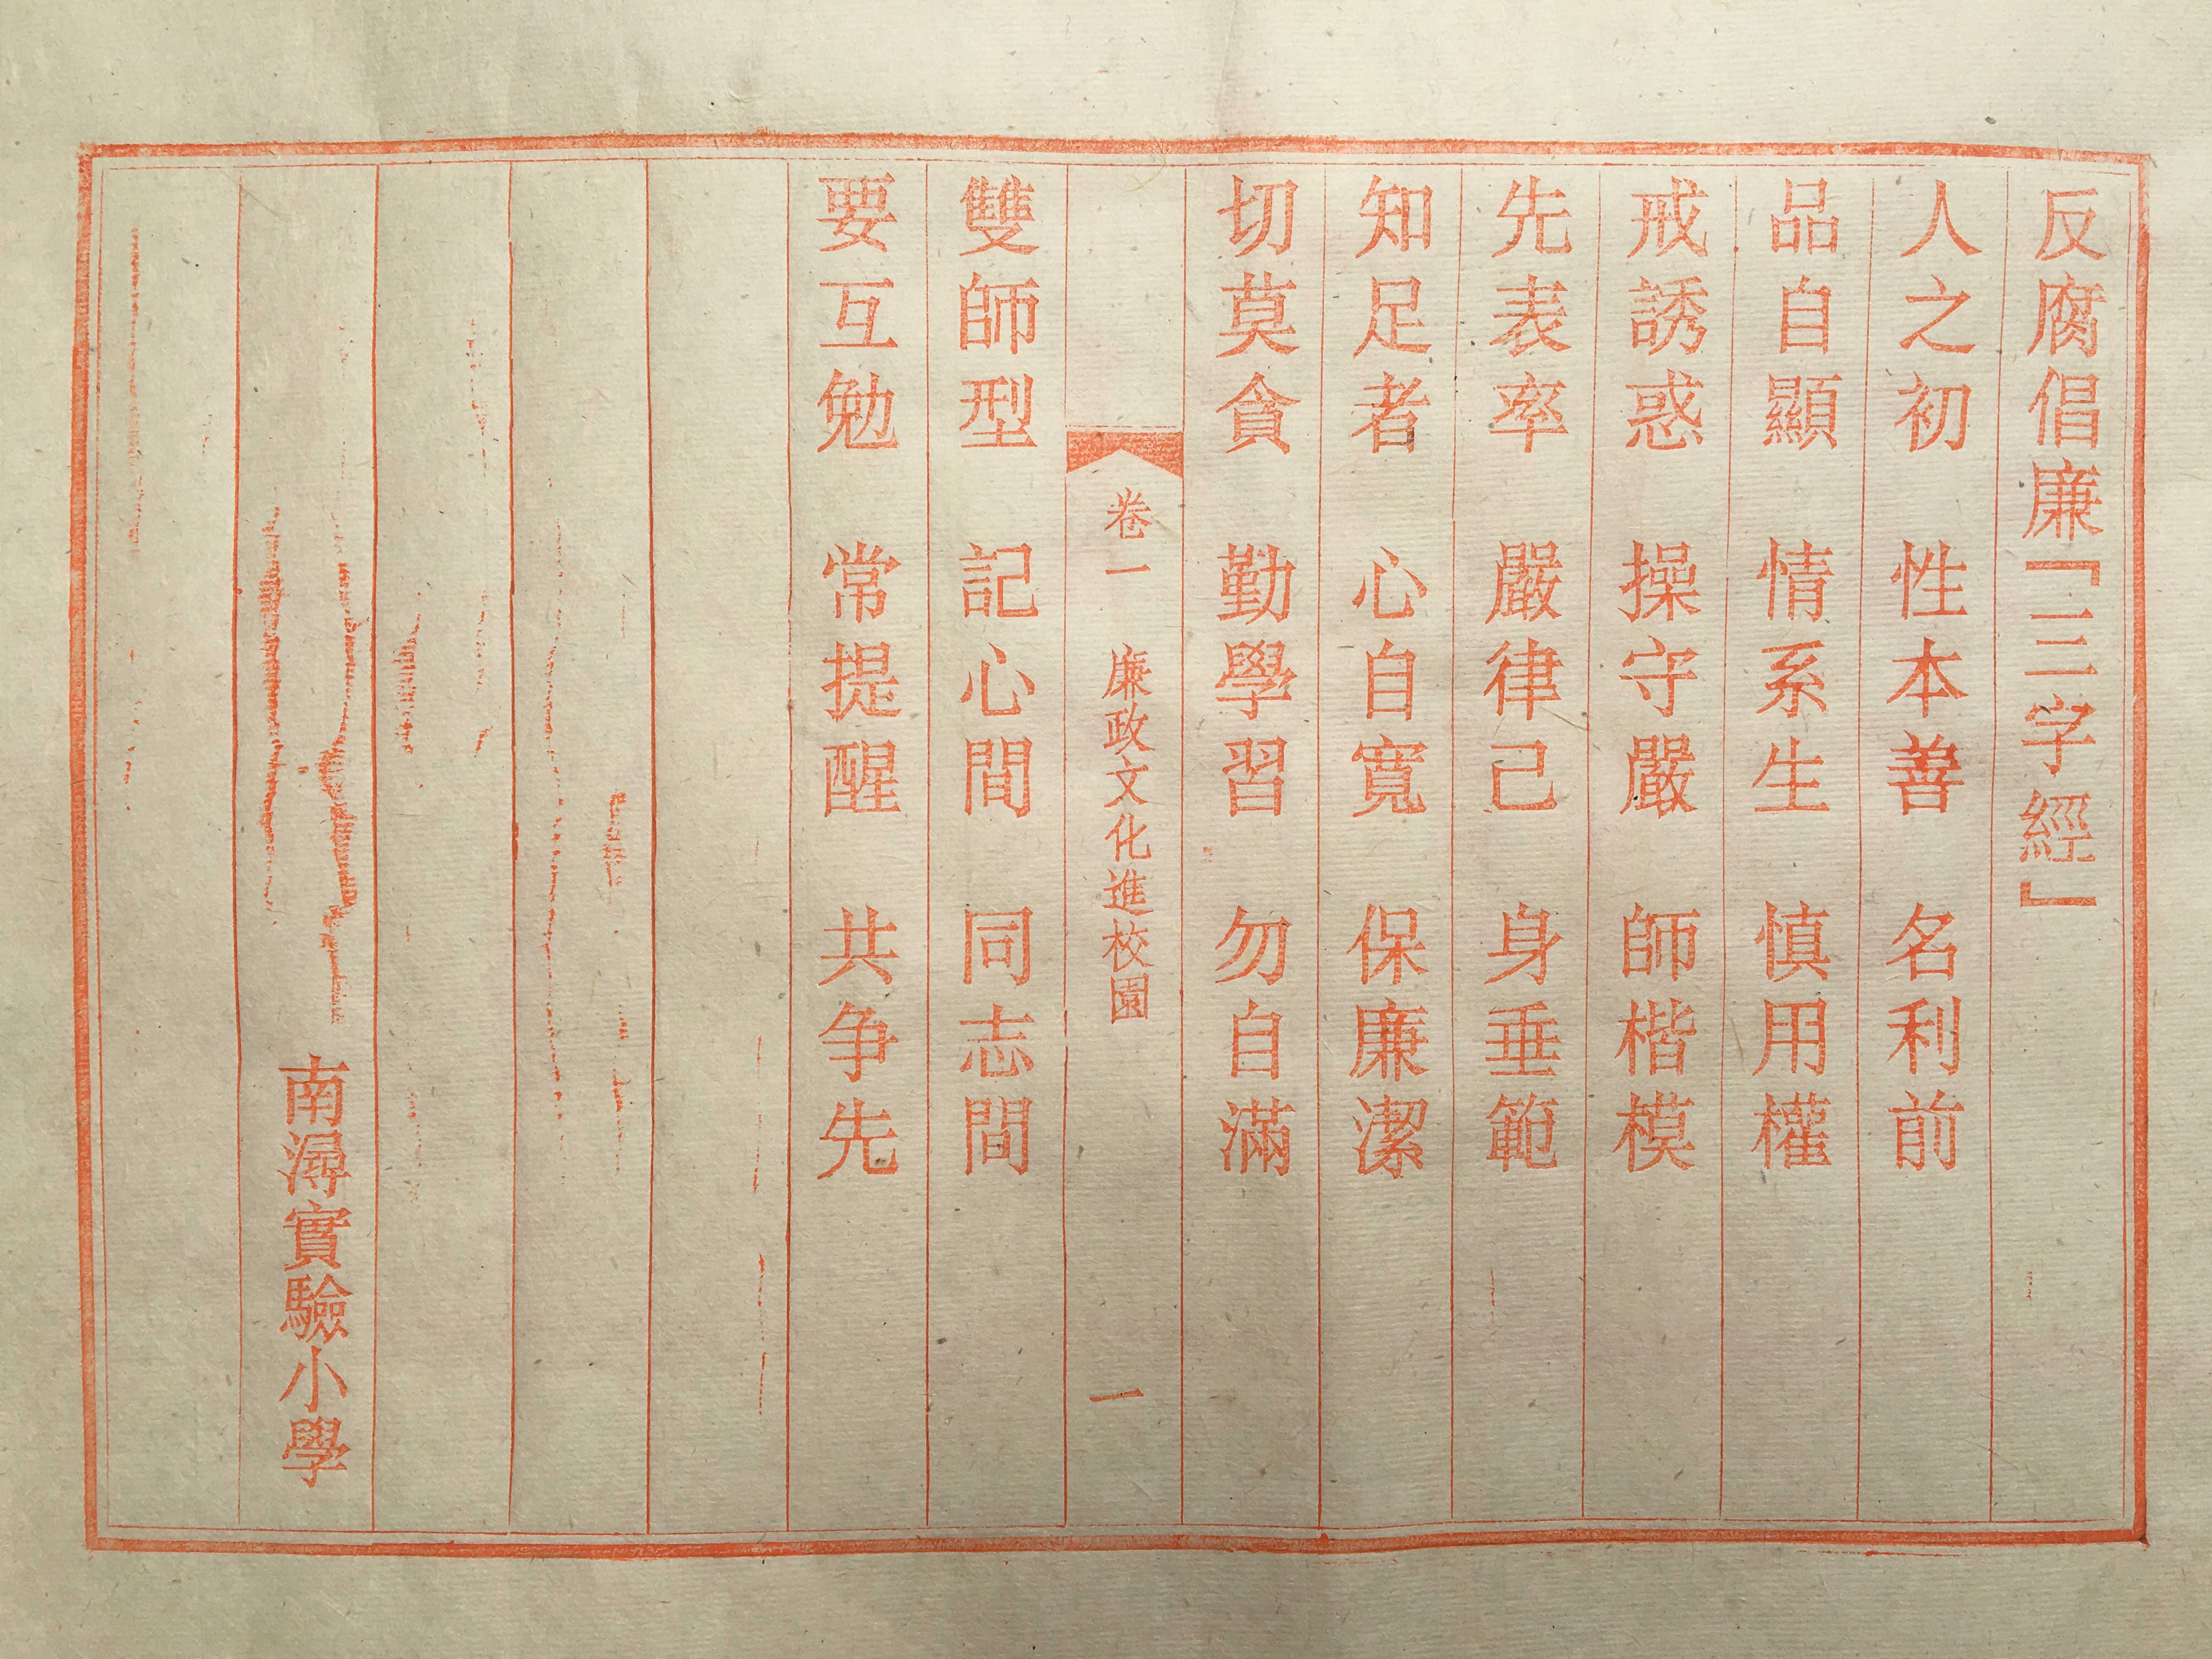 反腐倡廉「三字經」
人之初 性本善 名利前
品自顯 情系生 慎用權
戒誘惑 操守嚴 師楷模
先表率 嚴律己 身垂範
知足者 心自寬 保廉潔
切莫貪 勤學習 勿自滿
卷一 廉政文化進校園 一
雙師型 記心間 同志間
要互勉 常提醒 共争先
南潯實驗小學